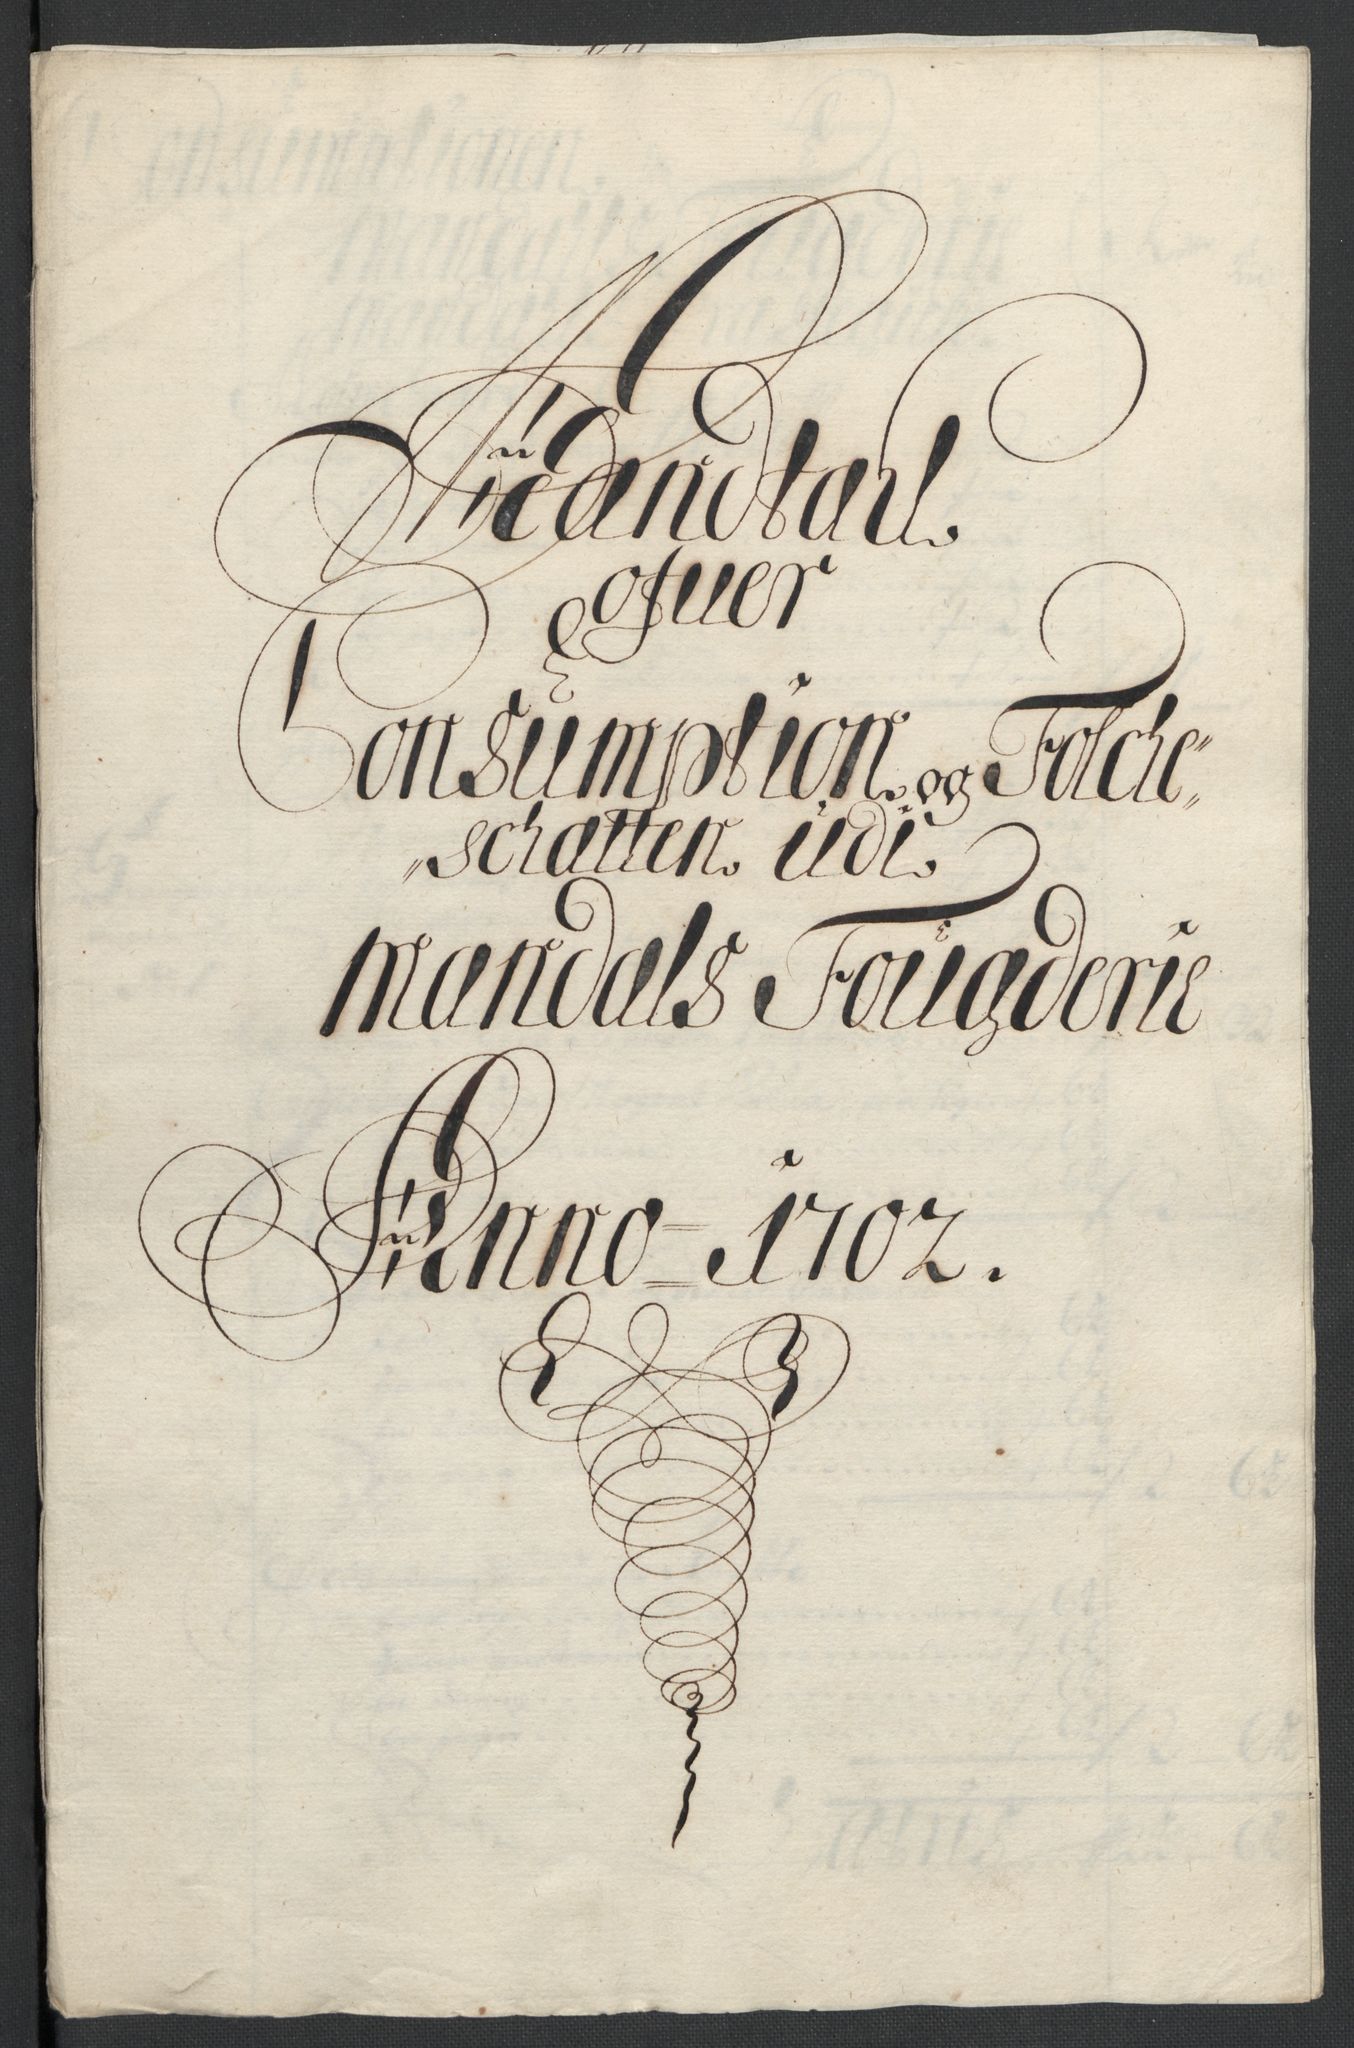 Mandtal
ofuer
Consumption og Folche-
schatten udi
Mandals Fougderie
Anno = 1702.